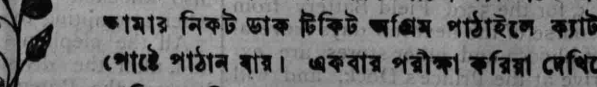 আমার নিকট ডাক টিকিট অগ্রিম পাঠাইলে ক্যাট
পোষ্টে পাঠান যায়। একবার পরীক্ষা করিয়া দেখি